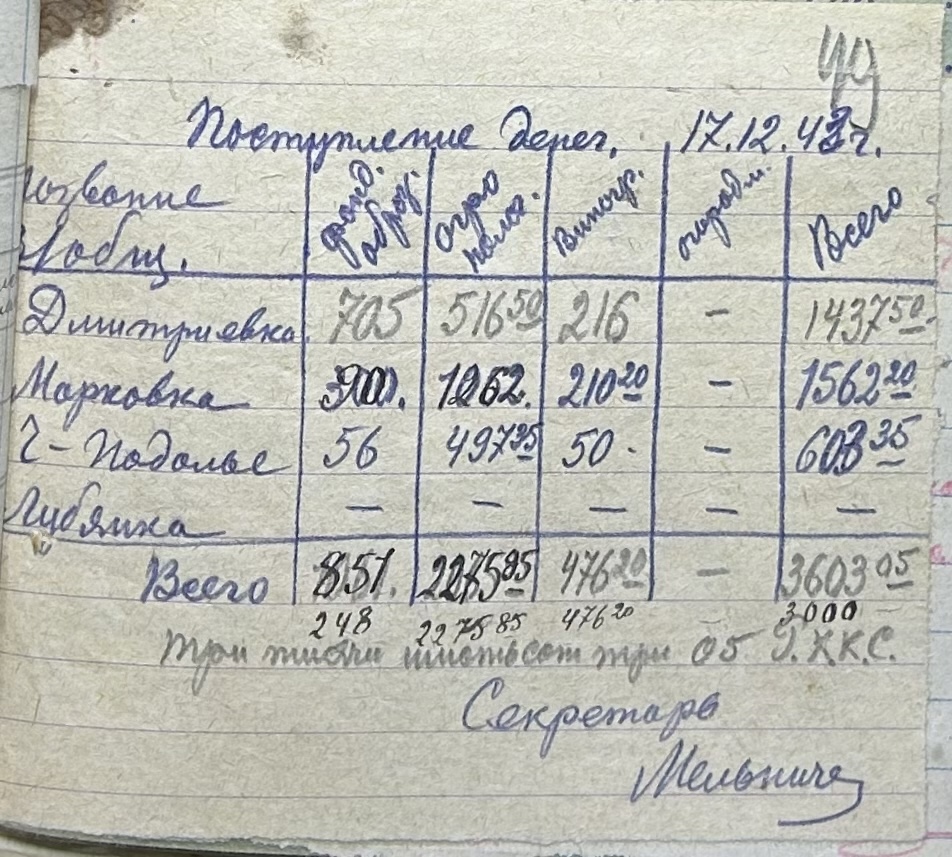 49
Поступление денег. 17.12.43г.
Название общ. | фонд. оброз. | огро полог. | Виногр. | огородн. | Всего
Дмитриевка | 705 | 516 50 | 216 | - | 1437 50
Марковка | 90. | 1262. | 210 20 | - | 1562 20
Г-Подолье | 56 | 497 35 | 50 | - | 603 35
Лубянка | - | - | - | - | -
Всего | 851. | 2275 85 | 476 20 | - | 3603 05
248 2275 85 476 20 3000
три тисячи шістьсот три 05
Секретарь
Мельниче